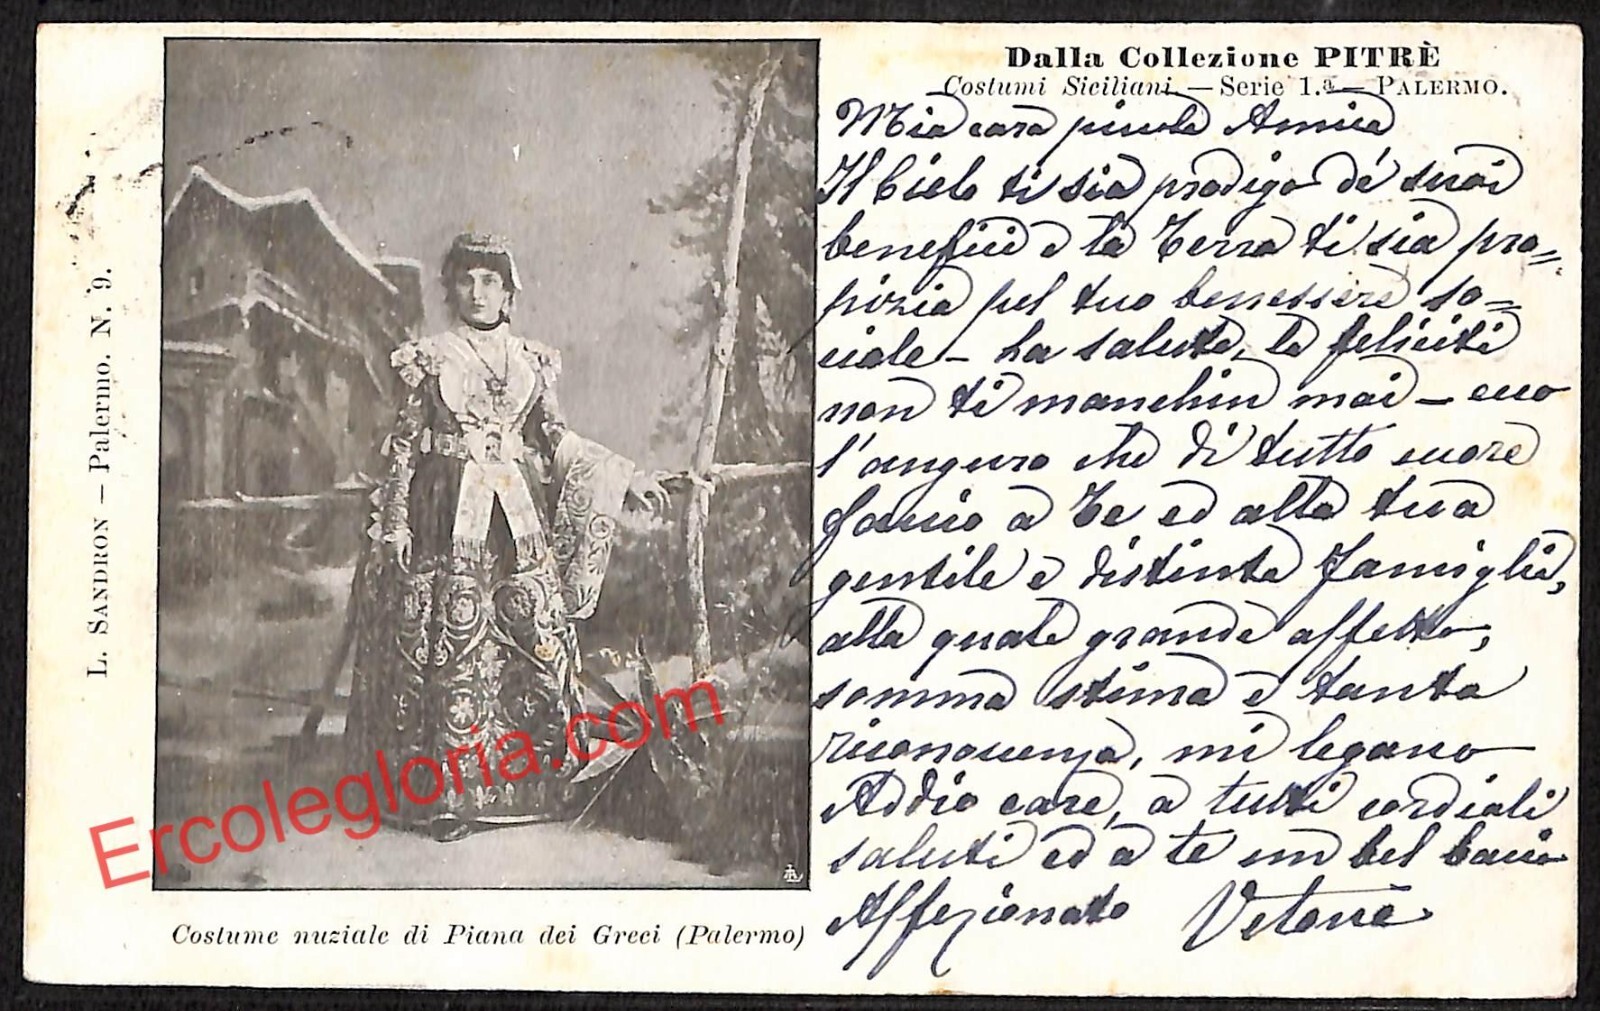 Dalla Collezione PITRÈ
Costumi Siciliani — Serie 1.ª — PALERMO.
Mia cara piccola Amica
Il Cielo ti sia prodigo de' suoi
benefici e la Terra ti sia pro=
pizia pel tuo benessere so=
ciale – la salute, la felicità
non ti manchin mai – ecco
l'auguro che di tutto cuore
faccio a Te ed alla tua
gentile e distinta Famiglia,
alla quale grande affetto,
somma stima e tanta
riconoscenza, mi legano
Addio care, a tutti cordiali
saluti ed a te un bel bacio
Affezionato
L. SANDRON — Palermo. N. 9.
Costume nuziale di Piana dei Greci (Palermo)
Ercolegloria.com